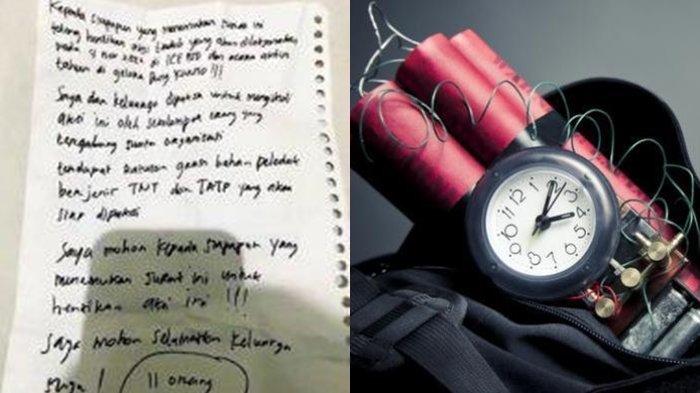 Kepada siapapun yang menemukan surat ini
tolong hentikan aksi yang akan dilaksanakan
pada 4 Nov 2022 di ICE BSD dan acara akhir
tahun di gelora Bung Karno !!!
Saya dan keluarga dipaksa untuk mengikuti
aksi ini oleh sekelompok orang yang
tergabung suatu organisasi
terdapat ratusan gram bahan peledak
berjenis TNT dan TATP yang akan
siap dipakai
Saya mohon kepada siapapun yang
menemukan surat ini untuk
hentikan aksi ini !!!
Saya mohon selamatkan keluarga
saya ! 11 orang
12
1
2
3
4
5
6
7
8
9
10
11